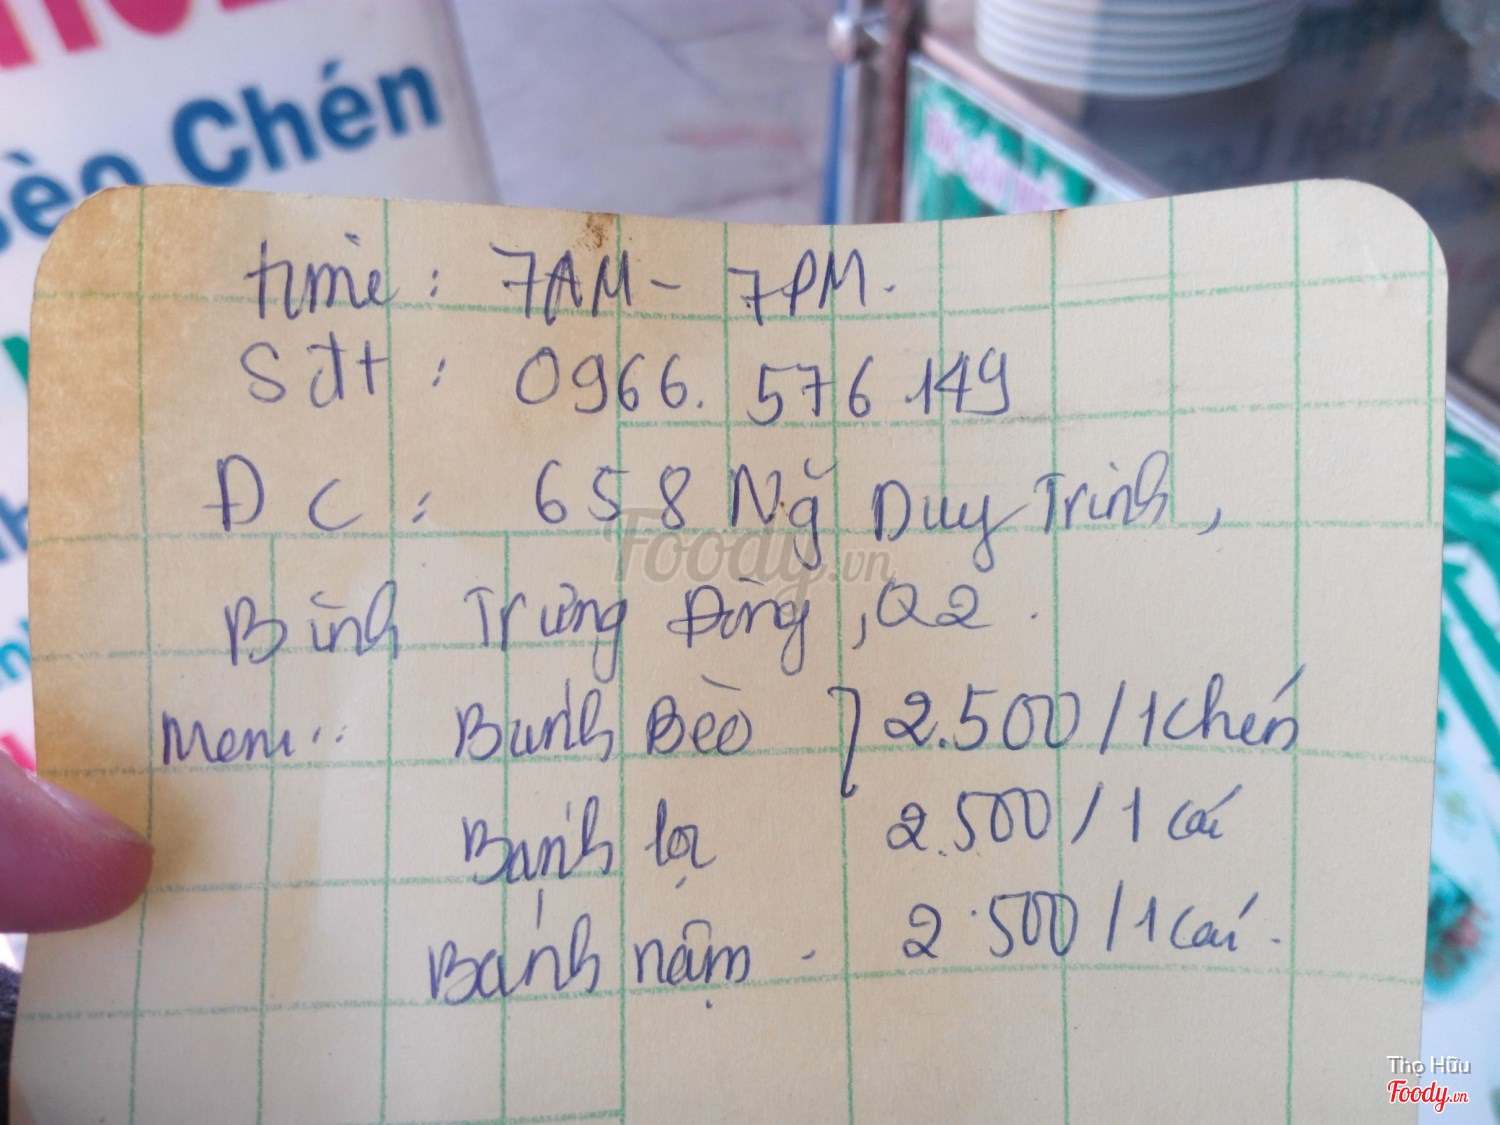 Bèo Chén
time : 7AM - 7PM.
Sđt : 0966. 576 149
ĐC : 658 Ng̃ Duy Trinh,
Bình Trưng Đông, Q2.
Menu : Bánh Bèo } 2.500 / 1 chén
Bánh lọc 2.500 / 1 cái
Bánh nậm . 2.500 / 1 cái.
Foody.vn
Thọ Hữu
Foody.vn